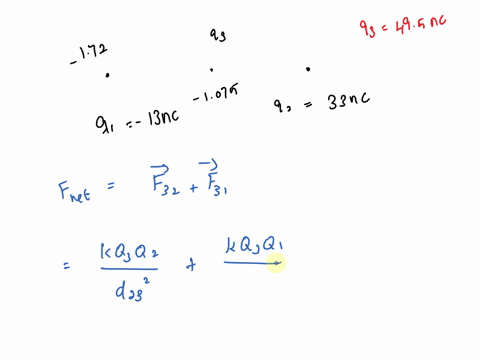 q3 = 49.5 nc
-1.72
q3
-1.075
q1 = -13nc
q2 = 33nc
Fnet = F32 + F31
= kQ3Q2 / d23² + kQ3Q1